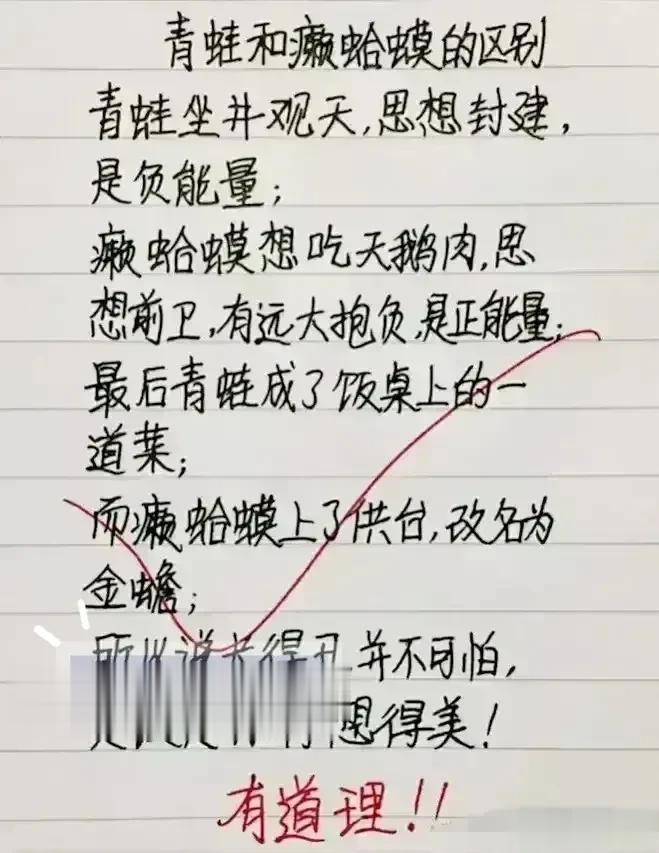 青蛙和癞蛤蟆的区别
青蛙坐井观天,思想封建,
是负能量;
癞蛤蟆想吃天鹅肉,思
想前卫,有远大抱负,是正能量;
最后青蛙成了饭桌上的一
道菜;
而癞蛤蟆上了供台,改名为
金蟾;
所以说长得丑并不可怕,
想得美!
有道理!!